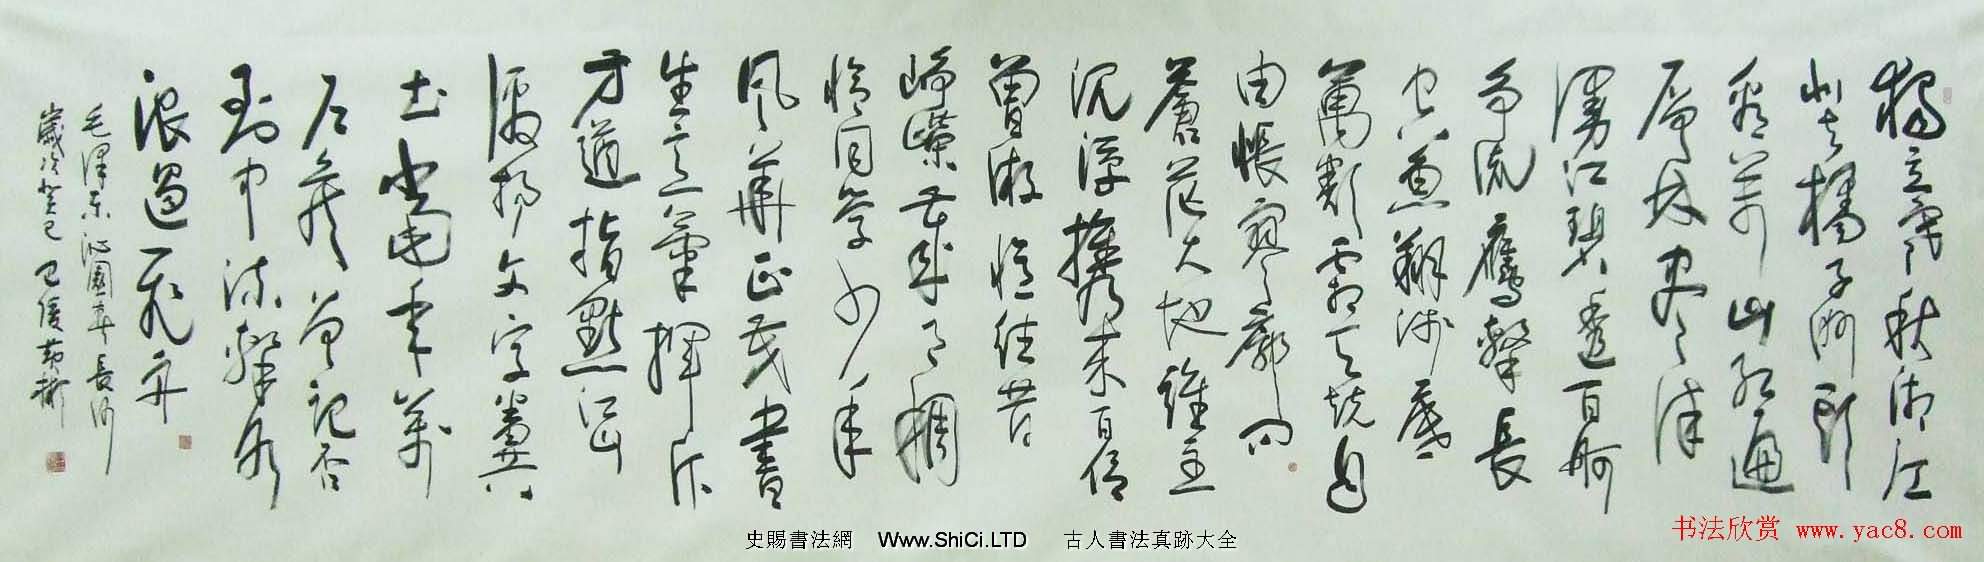 獨立寒秋湘江
北去橘子洲頭
看萬山紅遍
層林盡染
漫江碧透百舸
爭流鷹擊長
空魚翔淺底
萬類霜天競自
由悵寥廓問
蒼茫大地誰主
沉浮攜來百侶
曾游憶往昔
崢嶸歲月稠
恰同學少年
風華正茂書
生意氣揮斥
方遒指點江山
激揚文字糞
土當年萬
戶侯曾記否
到中流擊水
浪遏飛舟
毛澤東沁園春長沙
歲次癸巳
史賜書法網 Www.ShiCi.LTD 古人書法真跡大全
书法欣赏 www.yac8.com